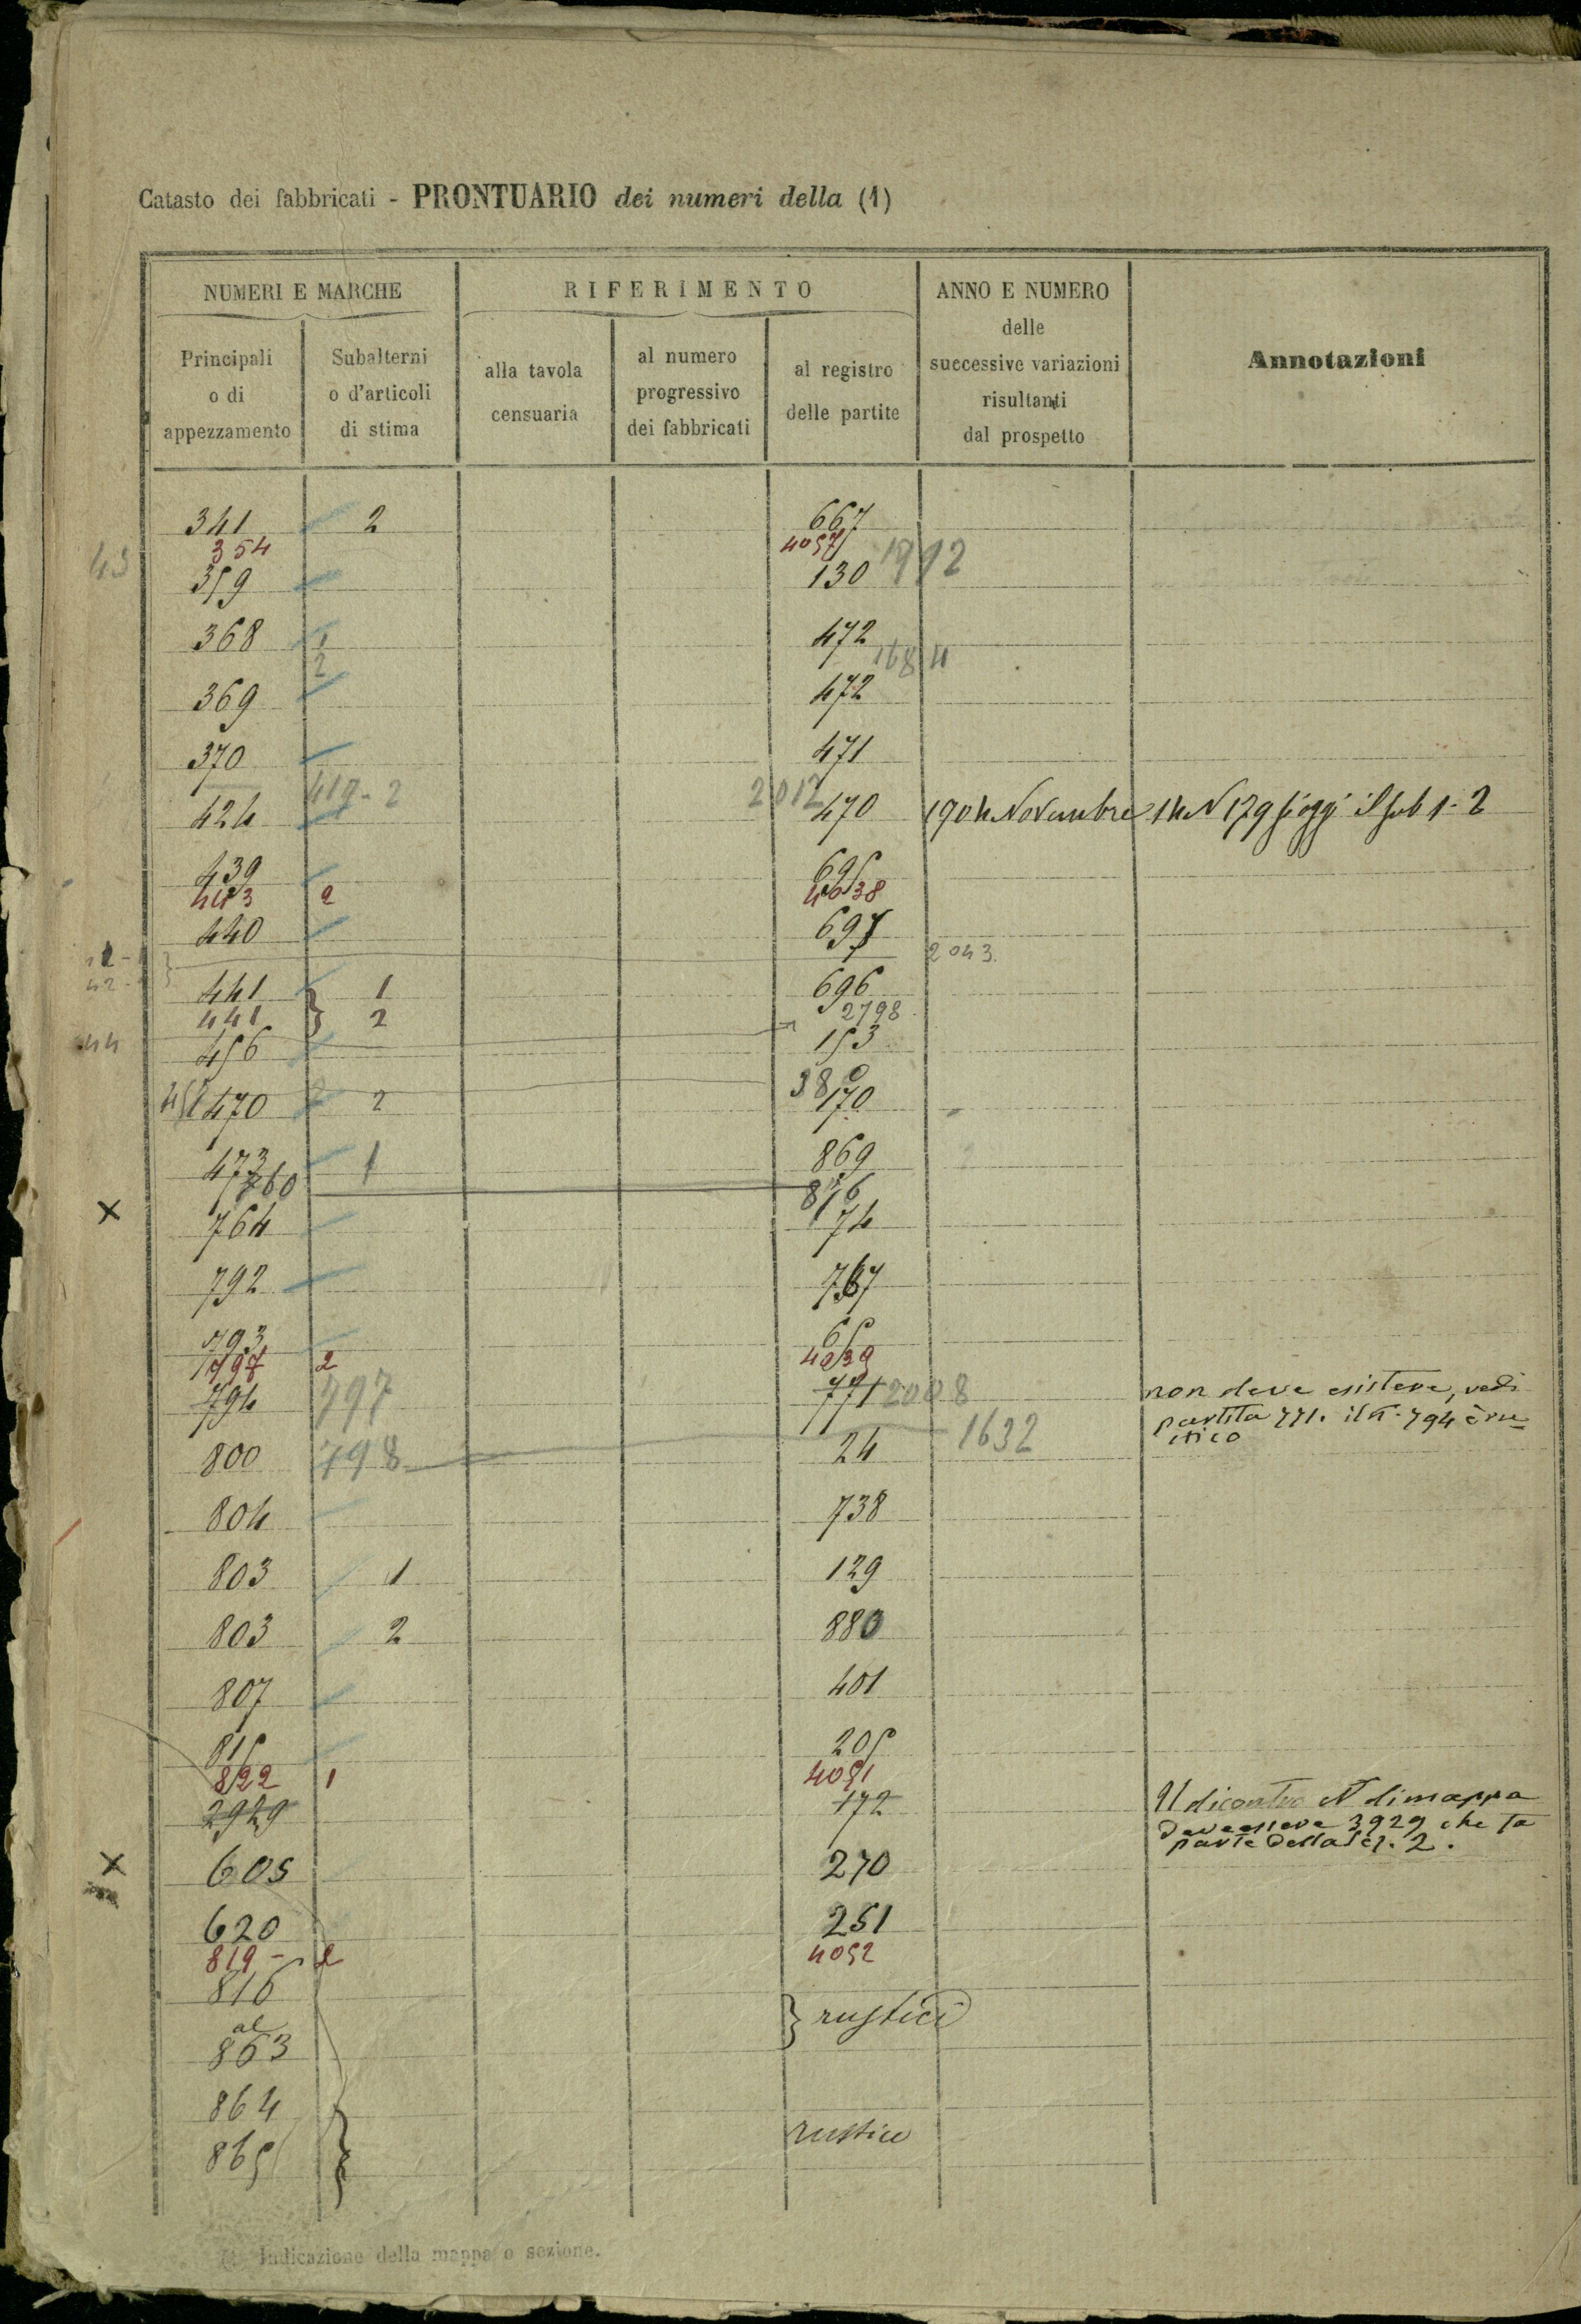 Catasto dei fabbricati - PRONTUARIO dei numeri della (1)
NUMERI E MARCHE
RIFERIMENTO
ANNO E NUMERO
delle
successive variazioni
risultanti
dal prospetto
Annotazioni
Principali
o di
appezzamento
Subalterni
o d'articoli
di stima
alla tavola
censuaria
al numero
progressivo
dei fabbricati
al registro
delle partite
341 2 667
354 4057
43 359 130 1912
368 1 472
2 1684
369 472
370 471
419-2 2012
424 470 1904 Novembre 14 N 179 il sub 1-2
439 695
443 2 4038
440 697
42- 2043
441 1 696
441 2 2798
44 456 153
380
470 2 170
473 1 869
760 816
764 74
792 767
793 65
797 2 4039
794 797 771 2008 non deve esistere, vedi
partita 771. il n. 794 è ru
stico
1632
800 798 24
804 738
803 1 129
803 2 880
807 401
815 205
822 1 4051
2929 172 Il dicontro N di mappa
deve essere 3929 che fa
parte della Sez. 2.
605 270
620 251
819 - 2 4052
816
al rustici
863
864
865 rustico
(1) Indicazione della mappa o sezione.